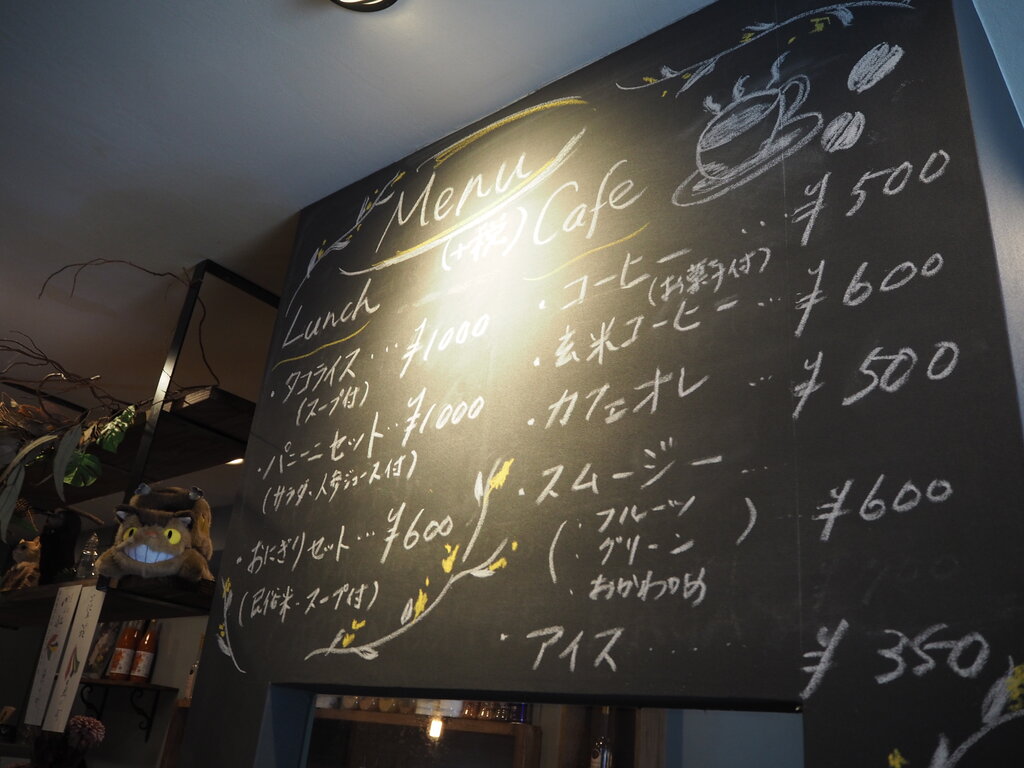 Menu
(+税)
Lunch
・タコライス…¥1000
(スープ付)
・パニーニセット…¥1000
(サラダ・人参ジュース付)
・おにぎりセット…¥600
(民俗米・スープ付)
Cafe
・コーヒー…¥500
(お菓子付)
・玄米コーヒー…¥600
・カフェオレ…¥500
・スムージー…¥600
(・フルーツ
・グリーン
・おかわかめ)
・アイス……¥350